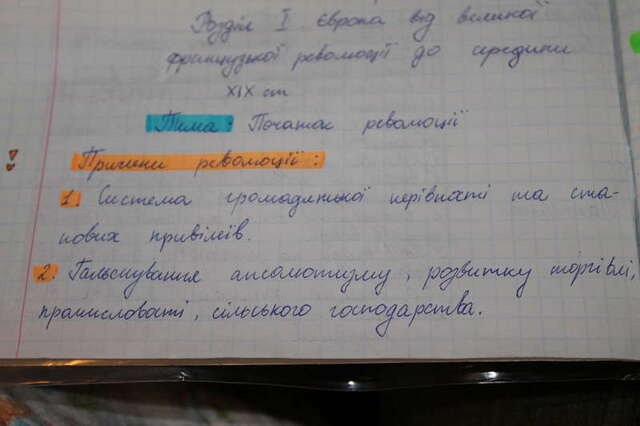 Розділ I Європа від великої
французької революції до середини
XIX ст
Тема: Початок революції
Причини революції:
1. Система громадянської нерівності та ста-
нових привілеїв.
2. Гальмування абсолютизму, розвитку торгівлі,
промисловості, сільського господарства.